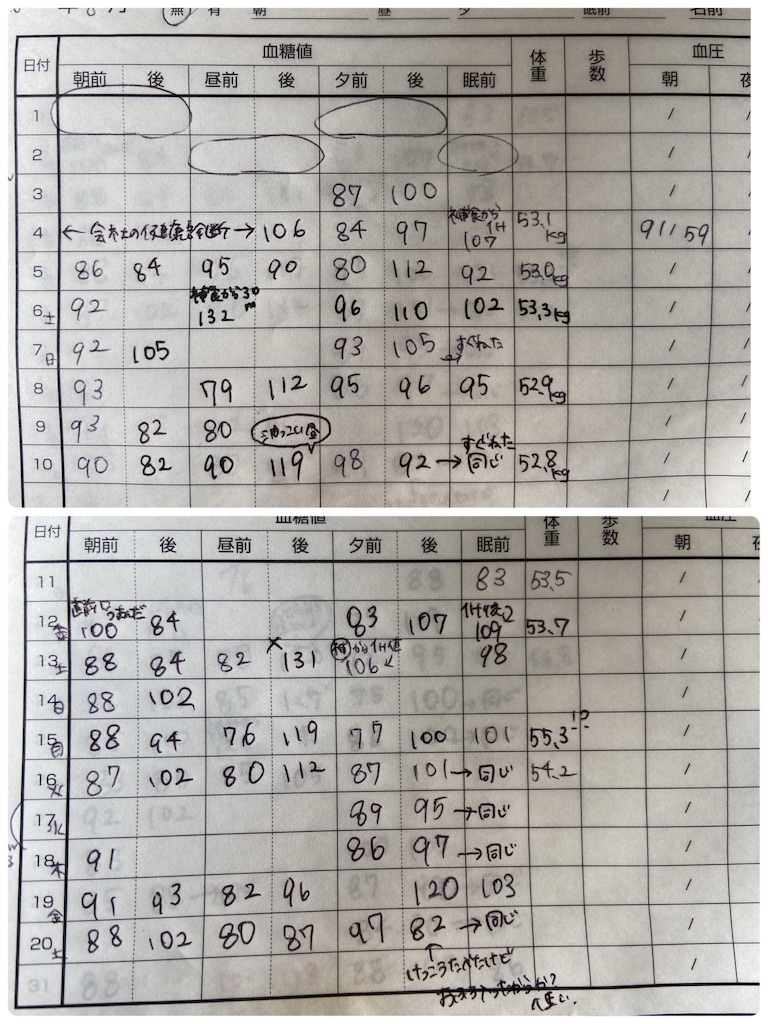 年 8 月 無 有 朝 昼 夕 眠前 名前
日付 血糖値 体重 歩数 血圧
朝前 後 昼前 後 夕前 後 眠前 朝 夜
1 /
2 /
3 87 100 /
4 ← 会社の健康診断 → 106 84 97 補食から1H 107 53.1kg 91/59
5 86 84 95 90 80 112 92 53.0kg /
6土 92 補食から30m 132 96 110 102 53.3kg /
7日 92 105 93 105 → すぐねた /
8 93 79 112 95 96 95 52.9kg /
9 93 82 80 /
10 90 82 90 119 98 92 → すぐねた 同じ 52.8kg /
日付 血糖値 体重 歩数 血圧
朝前 後 昼前 後 夕前 後 眠前 朝 夜
11 83 53.5 /
12金 100 84 83 107 1H後 109 53.7 /
13土 88 84 82 × 131 補から1H値 106 98 /
14日 88 102 /
15月 88 94 76 119 77 100 101 55.3 !? /
16火 87 102 80 112 87 101 → 同じ 54.2 /
17水 89 95 → 同じ /
18木 91 86 97 → 同じ /
19金 91 93 82 96 120 103 /
20土 88 102 80 87 97 82 → 同じ /
31 ↑ けっこうたべたけど /